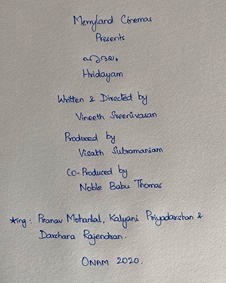 Merryland Cinemas
Presents
ഹൃദയം
Hridayam
Written & Directed by
Vineeth Sreenivasan
Produced by
Visakh Subramaniam
Co-Produced by
Noble Babu Thomas
*ing : Pranav Mohanlal, Kalyani Priyadarshan &
Darshana Rajendran.
ONAM 2020.